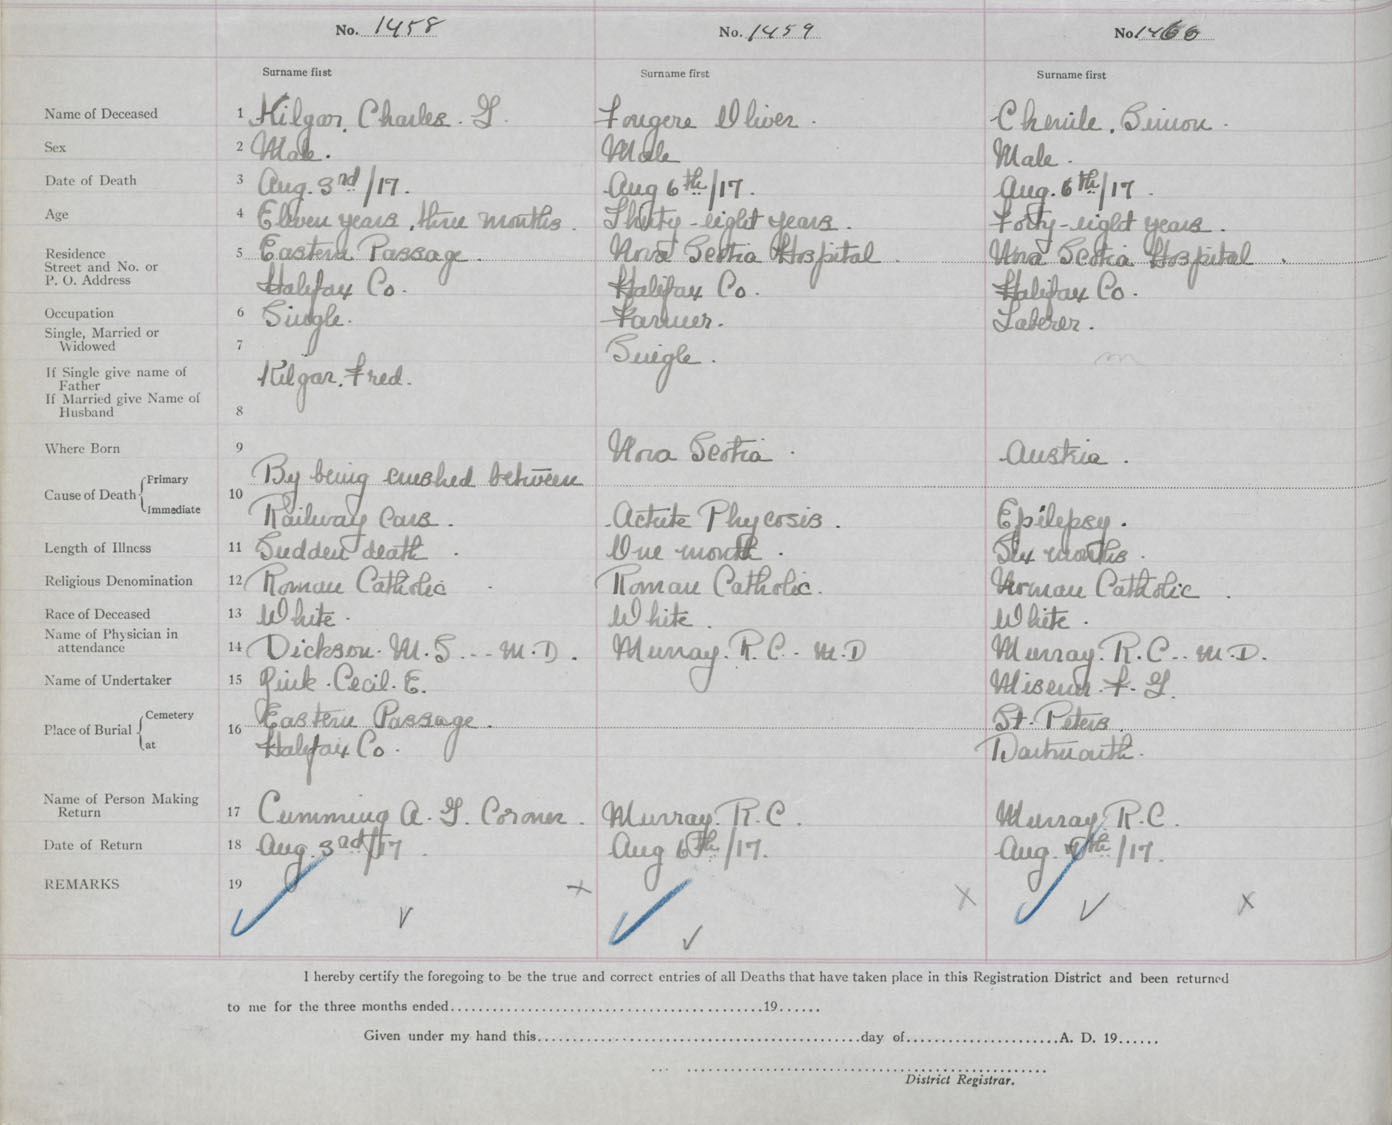 No. 1458 No. 1459 No. 1460
Surname first Surname first Surname first
Name of Deceased 1 Kilgar, Charles. G. Fougere Oliver. Chenile, Simon.
Sex 2 Male. Male Male.
Date of Death 3 Aug. 3rd/17. Aug 6th/17. Aug. 6th/17.
Age 4 Eleven years, three months. Thirty-eight years. Forty-eight years.
Residence 5 Eastern Passage. Nova Scotia Hospital. Nova Scotia Hospital.
Street and No. or
P. O. Address Halifax Co. Halifax Co. Halifax Co.
Occupation 6 Single. Farmer. Laberer.
Single, Married or
Widowed 7 Single. m
If Single give name of
Father Kilgar, Fred.
If Married give Name of
Husband 8
Where Born 9 Nova Scotia. Austria.
Primary By being crushed between
Cause of Death 10
Immediate Railway Cars. Actute Phycosis. Epilepsy.
Length of Illness 11 Sudden death. One month. Six months.
Religious Denomination 12 Roman Catholic. Roman Catholic. Roman Catholic.
Race of Deceased 13 White. White. White.
Name of Physician in
attendance 14 Dickson. M. S. - - M. D. Murray. R. C. - M. D Murray. R. C. - - M. D.
Name of Undertaker 15 Cecil. E. Misener. F. G.
Cemetery Eastern Passage. St. Peters
Place of Burial 16
at Halifax Co. Dartmouth.
Name of Person Making
Return 17 Cumming A. G. Coroner. Murray. R. C. Murray. R. C.
Date of Return 18 Aug. 3rd/17 Aug 6th/17. Aug. /17.
REMARKS 19
I hereby certify the foregoing to be the true and correct entries of all Deaths that have taken place in this Registration District and been returned
to me for the three months ended..........19......
Given under my hand this..........day of..........A. D. 19......
District Registrar.